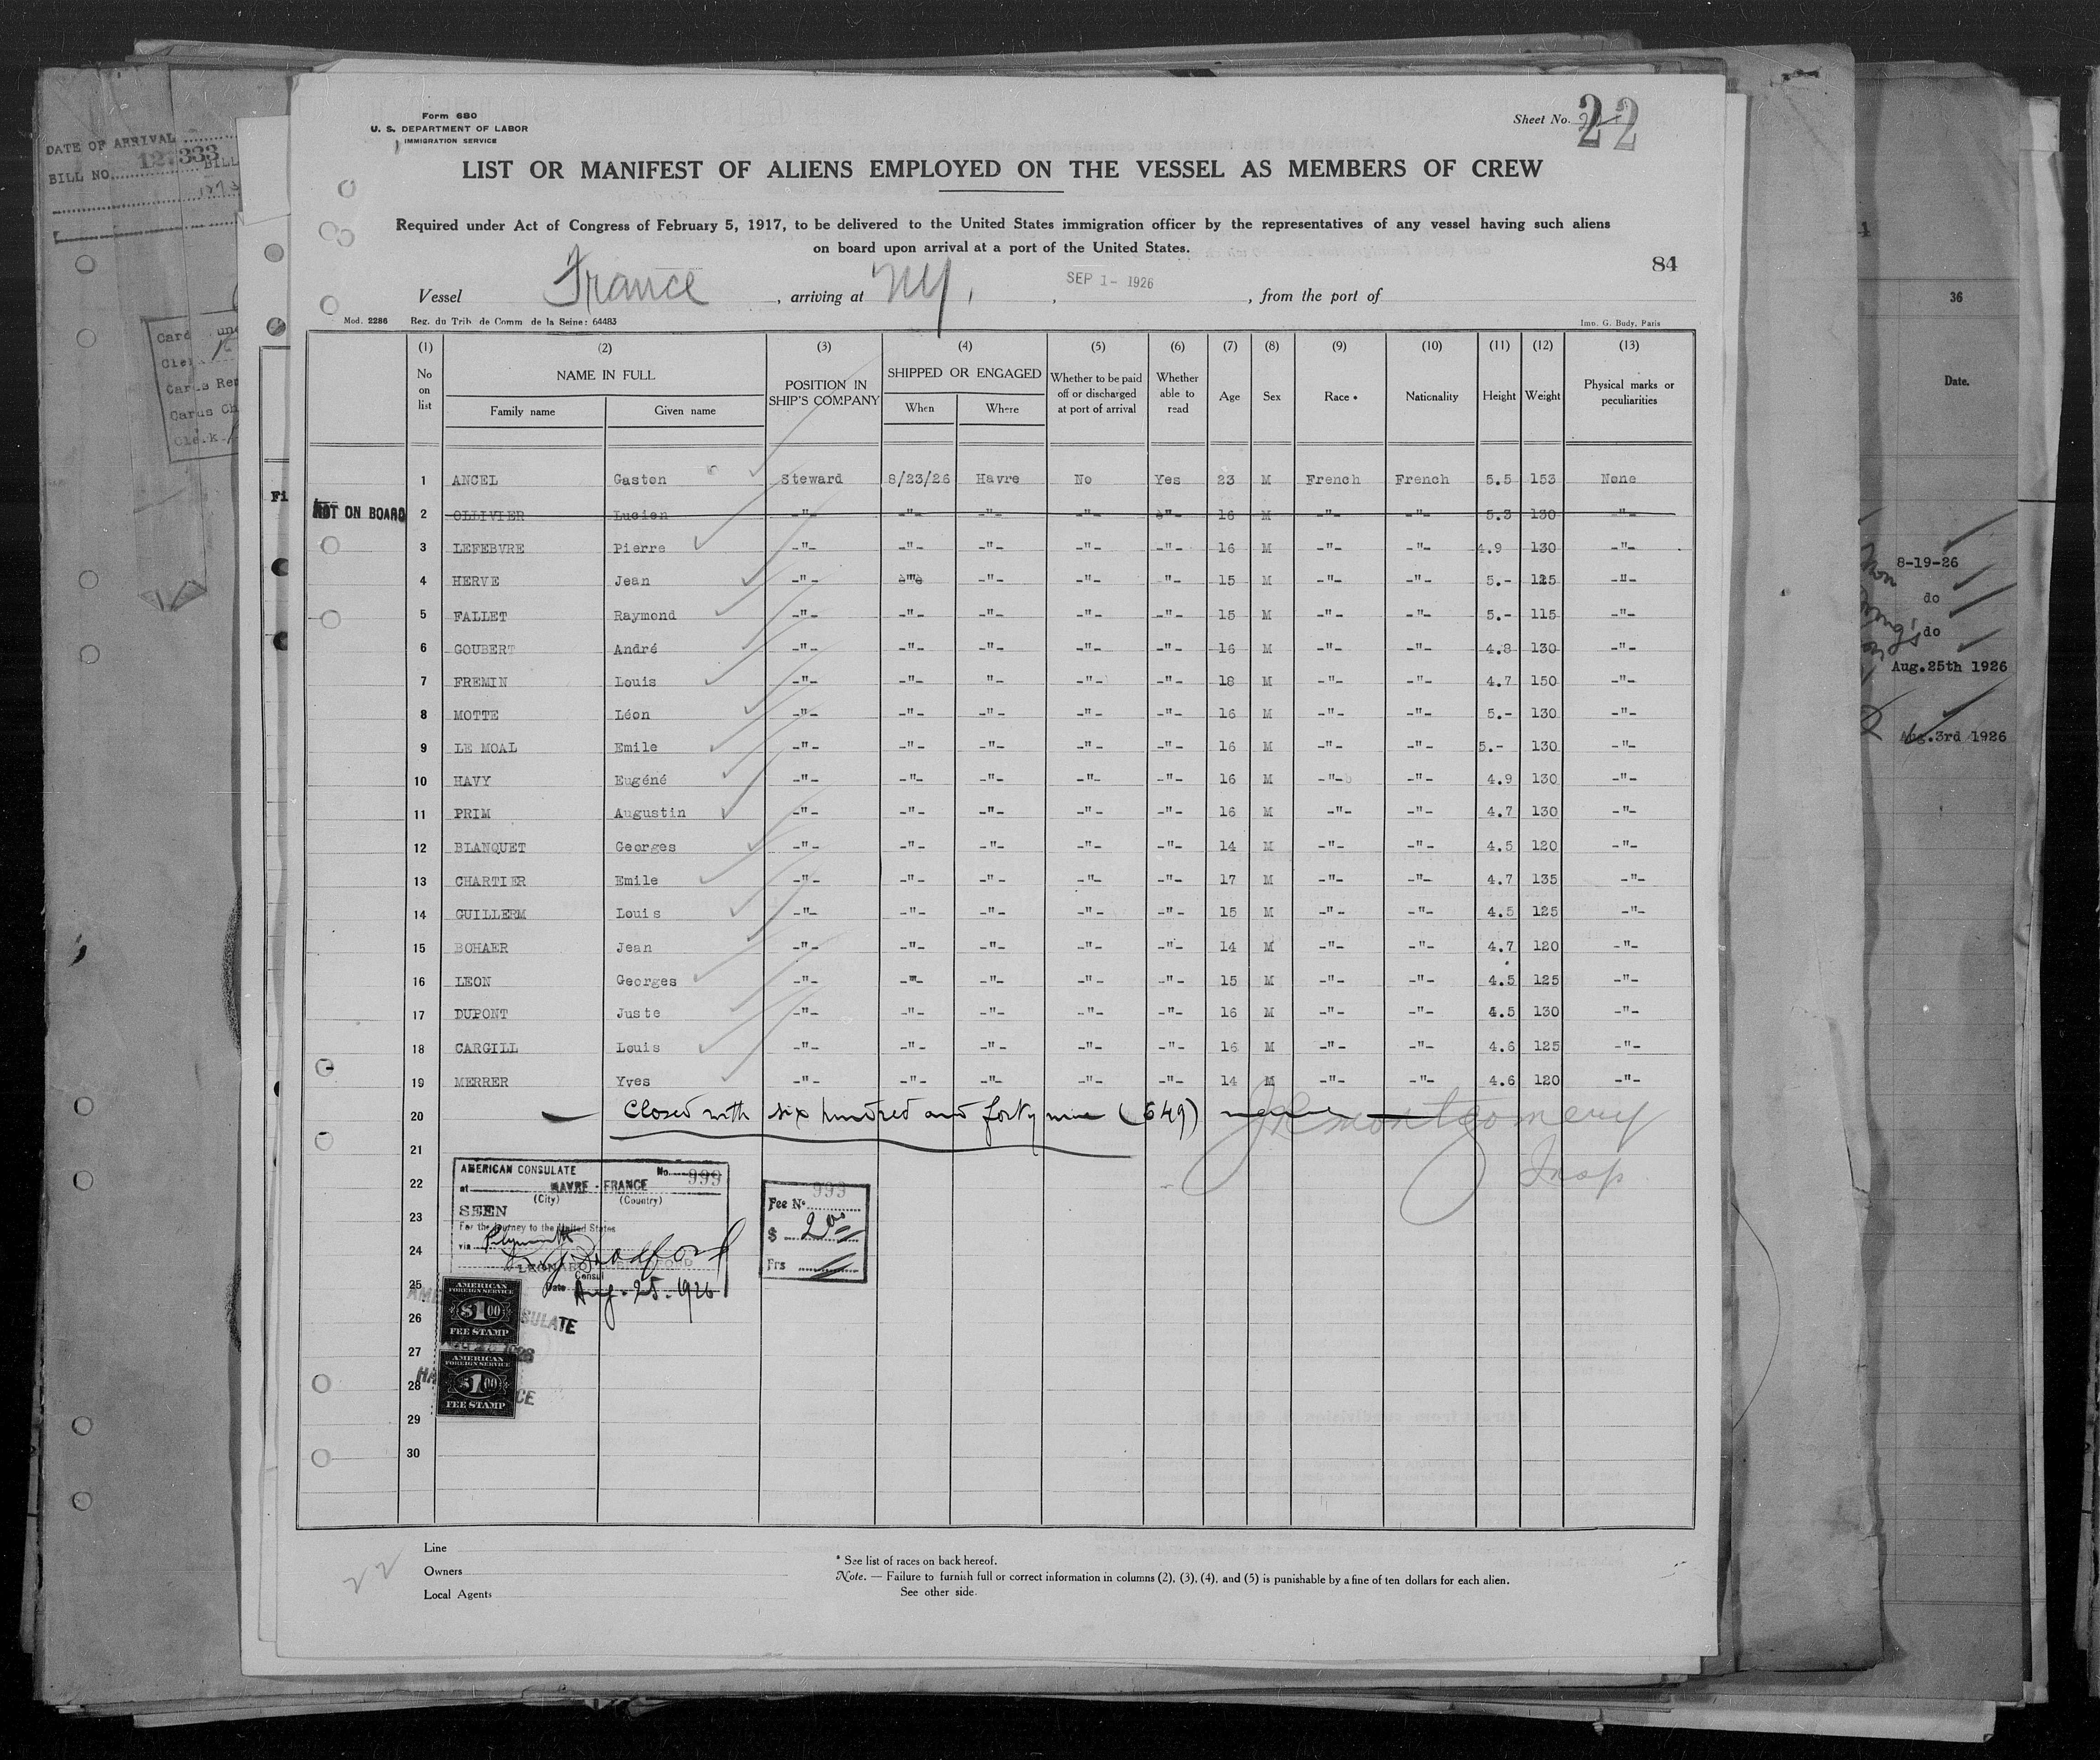 Form 680
U. S. DEPARTMENT OF LABOR
IMMIGRATION SERVICE
Sheet No. 22
LIST OR MANIFEST OF ALIENS EMPLOYED ON THE VESSEL AS MEMBERS OF CREW
Required under Act of Congress of February 5, 1917, to be delivered to the United States immigration officer by the representatives of any vessel having such aliens
on board upon arrival at a port of the United States.
84
Vessel France, arriving at NY, SEP 1- 1926, from the port of
Mod. 2286 Reg. du Trib. de Comm. de la Seine: 64483 Imp. G. Body, Paris
(1) (2) (3) (4) (5) (6) (7) (8) (9) (10) (11) (12) (13)
No on list NAME IN FULL Family name Given name POSITION IN SHIP'S COMPANY SHIPPED OR ENGAGED When Where Whether to be paid off or discharged at port of arrival Whether able to read Age Sex Race * Nationality Height Weight Physical marks or peculiarities
1 ANCEL Gaston Steward 8/23/26 Havre No Yes 23 M French French 5.5 153 None
NOT ON BOARD 2 OLLIVIER Lucien -"- -"- -"- -"- -"- 16 M -"- -"- 5.3 130 -"-
3 LEFEBVRE Pierre -"- -"- -"- -"- -"- 16 M -"- -"- 4.9 130 -"-
4 HERVE Jean -"- -"- -"- -"- -"- 15 M -"- -"- 5.- 125 -"-
5 FALLET Raymond -"- -"- -"- -"- -"- 15 M -"- -"- 5.- 115 -"-
6 GOUBERT André -"- -"- -"- -"- -"- 16 M -"- -"- 4.8 130 -"-
7 FREMIN Louis -"- -"- "- -"- -"- 18 M -"- -"- 4.7 150 -"-
8 MOTTE Léon -"- -"- -"- -"- -"- 16 M -"- -"- 5.- 130 -"-
9 LE MOAL Emile -"- -"- -"- -"- -"- 16 M -"- -"- 5.- 130 -"-
10 HAVY Eugéné -"- -"- -"- -"- -"- 16 M -"- -"- 4.9 130 -"-
11 PRIM Augustin -"- -"- -"- -"- -"- 16 M -"- -"- 4.7 130 -"-
12 BLANQUET Georges -"- -"- -"- -"- -"- 14 M -"- -"- 4.5 120 -"-
13 CHARTIER Emile -"- -"- -"- -"- -"- 17 M -"- -"- 4.7 135 -"-
14 GUILLERM Louis -"- -"- -"- -"- -"- 15 M -"- -"- 4.5 125 -"-
15 BOHAER Jean -"- -"- -"- -"- -"- 14 M -"- -"- 4.7 120 -"-
16 LEON Georges -"- -"- -"- -"- -"- 15 M -"- -"- 4.5 125 -"-
17 DUPONT Juste -"- -"- -"- -"- -"- 16 M -"- -"- 4.5 130 -"-
18 CARGILL Louis -"- -"- -"- -"- -"- 16 M -"- -"- 4.6 125 -"-
19 MERRER Yves -"- -"- -"- -"- -"- 14 M -"- -"- 4.6 120 -"-
20 Closed with six hundred and forty nine (649) names
JR Montgomery
Insp
21
22
23
24
25
26
27
28
29
30
AMERICAN CONSULATE No. 999
at HAVRE - FRANCE
(City) (Country)
SEEN
For the journey to the United States
via Plymouth
Consul
Date Aug. 25. 1926
Fee No 999
$ 2 00
Frs
AMERICAN
FOREIGN SERVICE
$1.00
FEE STAMP
AMERICAN
FOREIGN SERVICE
$1.00
FEE STAMP
Line
Owners
Local Agents
* See list of races on back hereof.
Note. — Failure to furnish full or correct information in columns (2), (3), (4), and (5) is punishable by a fine of ten dollars for each alien.
See other side.
22
DATE OF ARRIVAL
12 333
BILL NO. BILL
36
Date.
8-19-26
do
do
Aug.25th 1926
Aug.3rd 1926